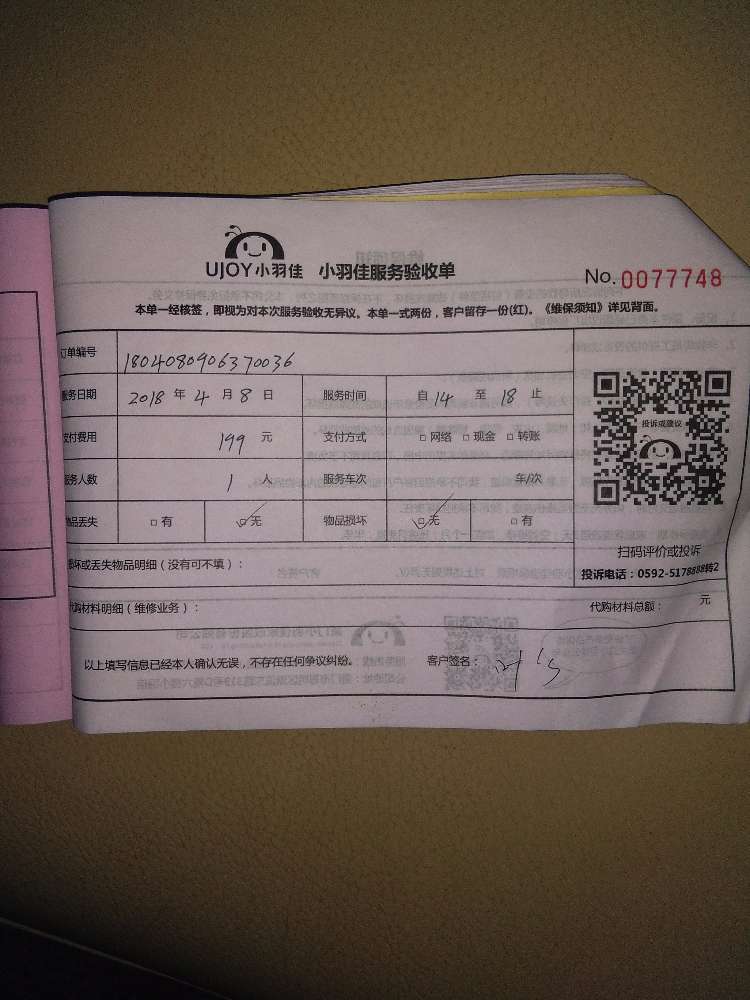 UJOY小羽佳 小羽佳服务验收单
No. 0077748
本单一经核签，即视为对本次服务验收无异议。本单一式两份，客户留存一份(红)。《维保须知》详见背面。
订单编号 1804080906370036
服务日期 2018 年 4 月 8 日 服务时间 自 14 至 18 止
支付费用 199 元 支付方式 □网络 □现金 □转账
服务人数 1 人 服务车次 年/次
物品丢失 □有 ☑无 物品损坏 ☑无 □有
投诉或建议
扫码评价或投诉
投诉电话：0592-5178888转2
损坏或丢失物品明细（没有可不填）：
代购材料明细（维修业务）： 代购材料总额： 元
以上填写信息已经本人确认无误，不存在任何争议纠纷。 客户签名：